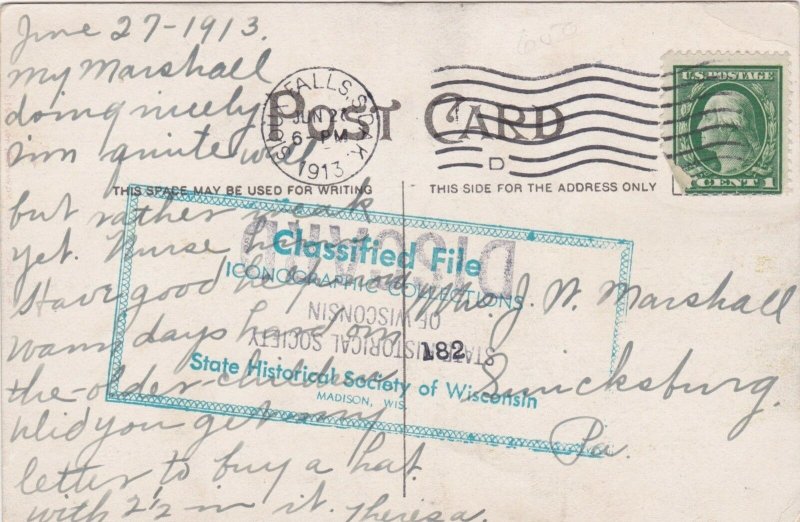 June 27-1913.
My Marshall
doing nicely
am quite well
but rather weak
yet. Nurse here
Have good help now
warm days hard on
the older children
Did you get my
letter to buy a hat.
with 2 1/2 in it. Theresa.
POST CARD
SIOUX FALLS, S. DAK.
JUN 27
6-PM
1913
D
U.S. POSTAGE
CENT
THIS SPACE MAY BE USED FOR WRITING
THIS SIDE FOR THE ADDRESS ONLY
Classified File
ICONOGRAPHIC COLLECTIONS
182
State Historical Society of Wisconsin
MADISON, WIS.
DISCARD
STATE HISTORICAL SOCIETY
OF WISCONSIN
Mrs. J. W. Marshall
Smicksburg,
Pa.